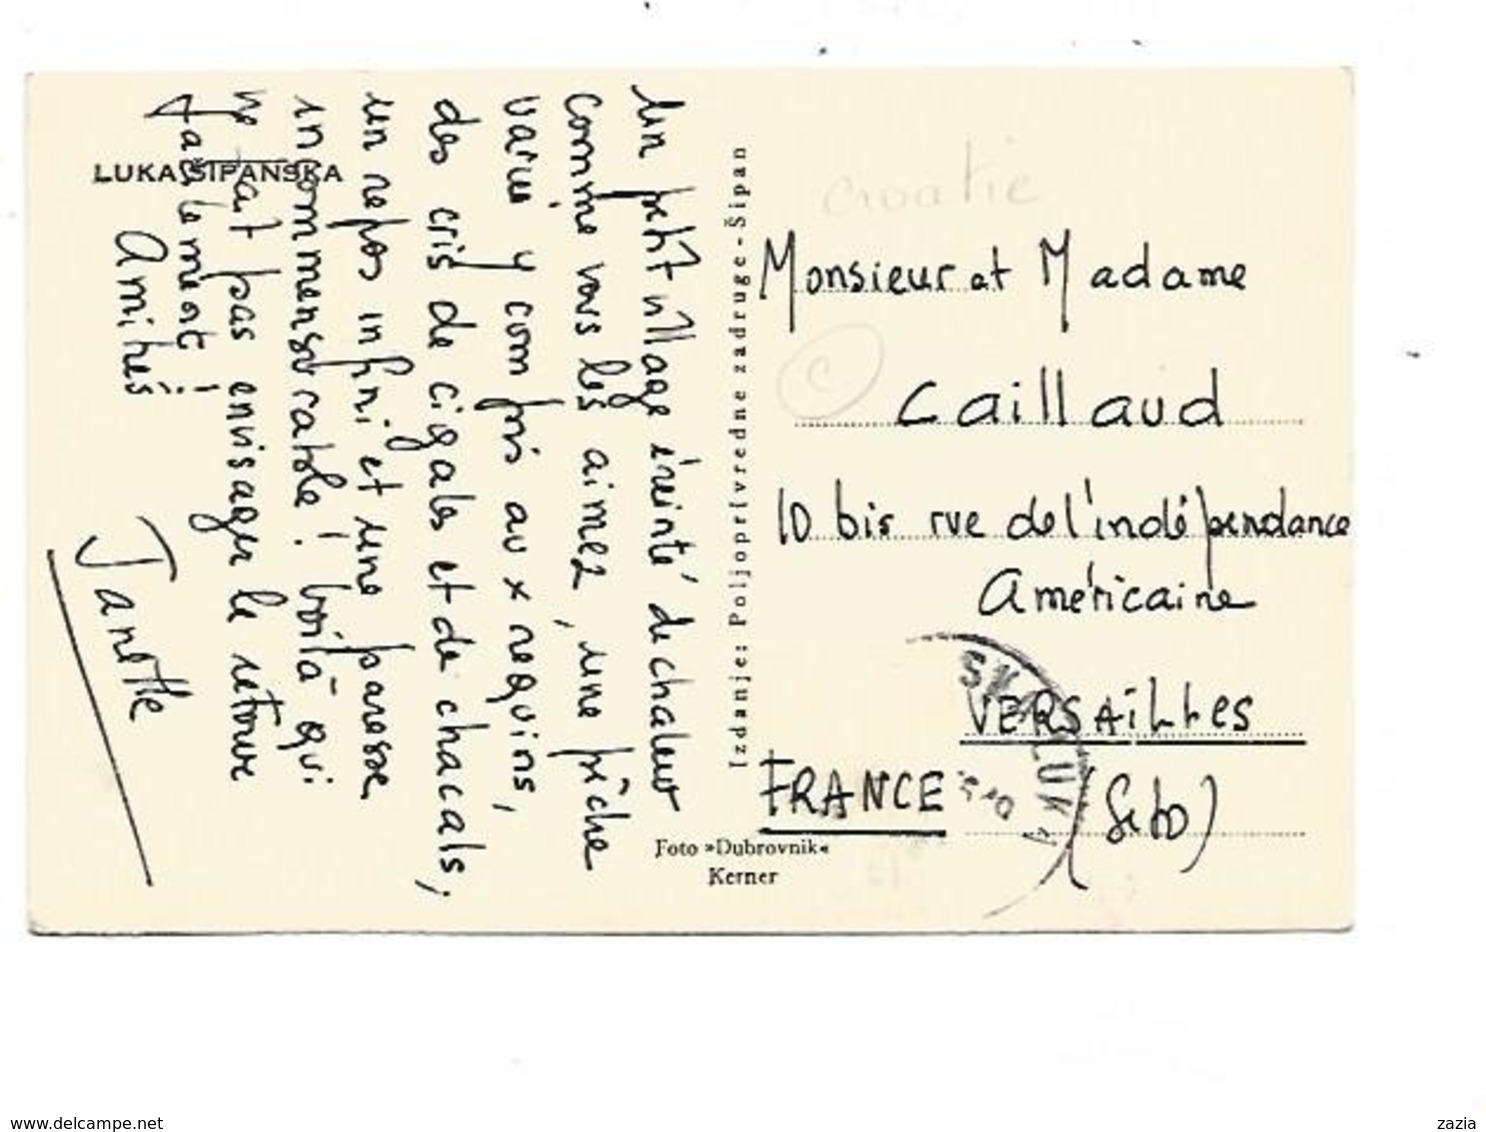 LUKA ŠIPANSKA
Un petit village éreinté de chaleur
comme vous les aimez, une pêche
variée y compris aux requins,
des cris de cigales et de chacals,
un repos infini et une paresse
incommensurable ! voilà qui
ne fait pas envisager le retour
facilement !
Amitiés
Janette
Izdanje: Poljoprivredne zadruge-Šipan
Foto »Dubrovnik«
Kerner
Croatie
C
Monsieur et Madame
Caillaud
10 bis rue de l'indépendance
Américaine
VERSAiLLes
FRANCE (S et O)
delcampe.net
zazia